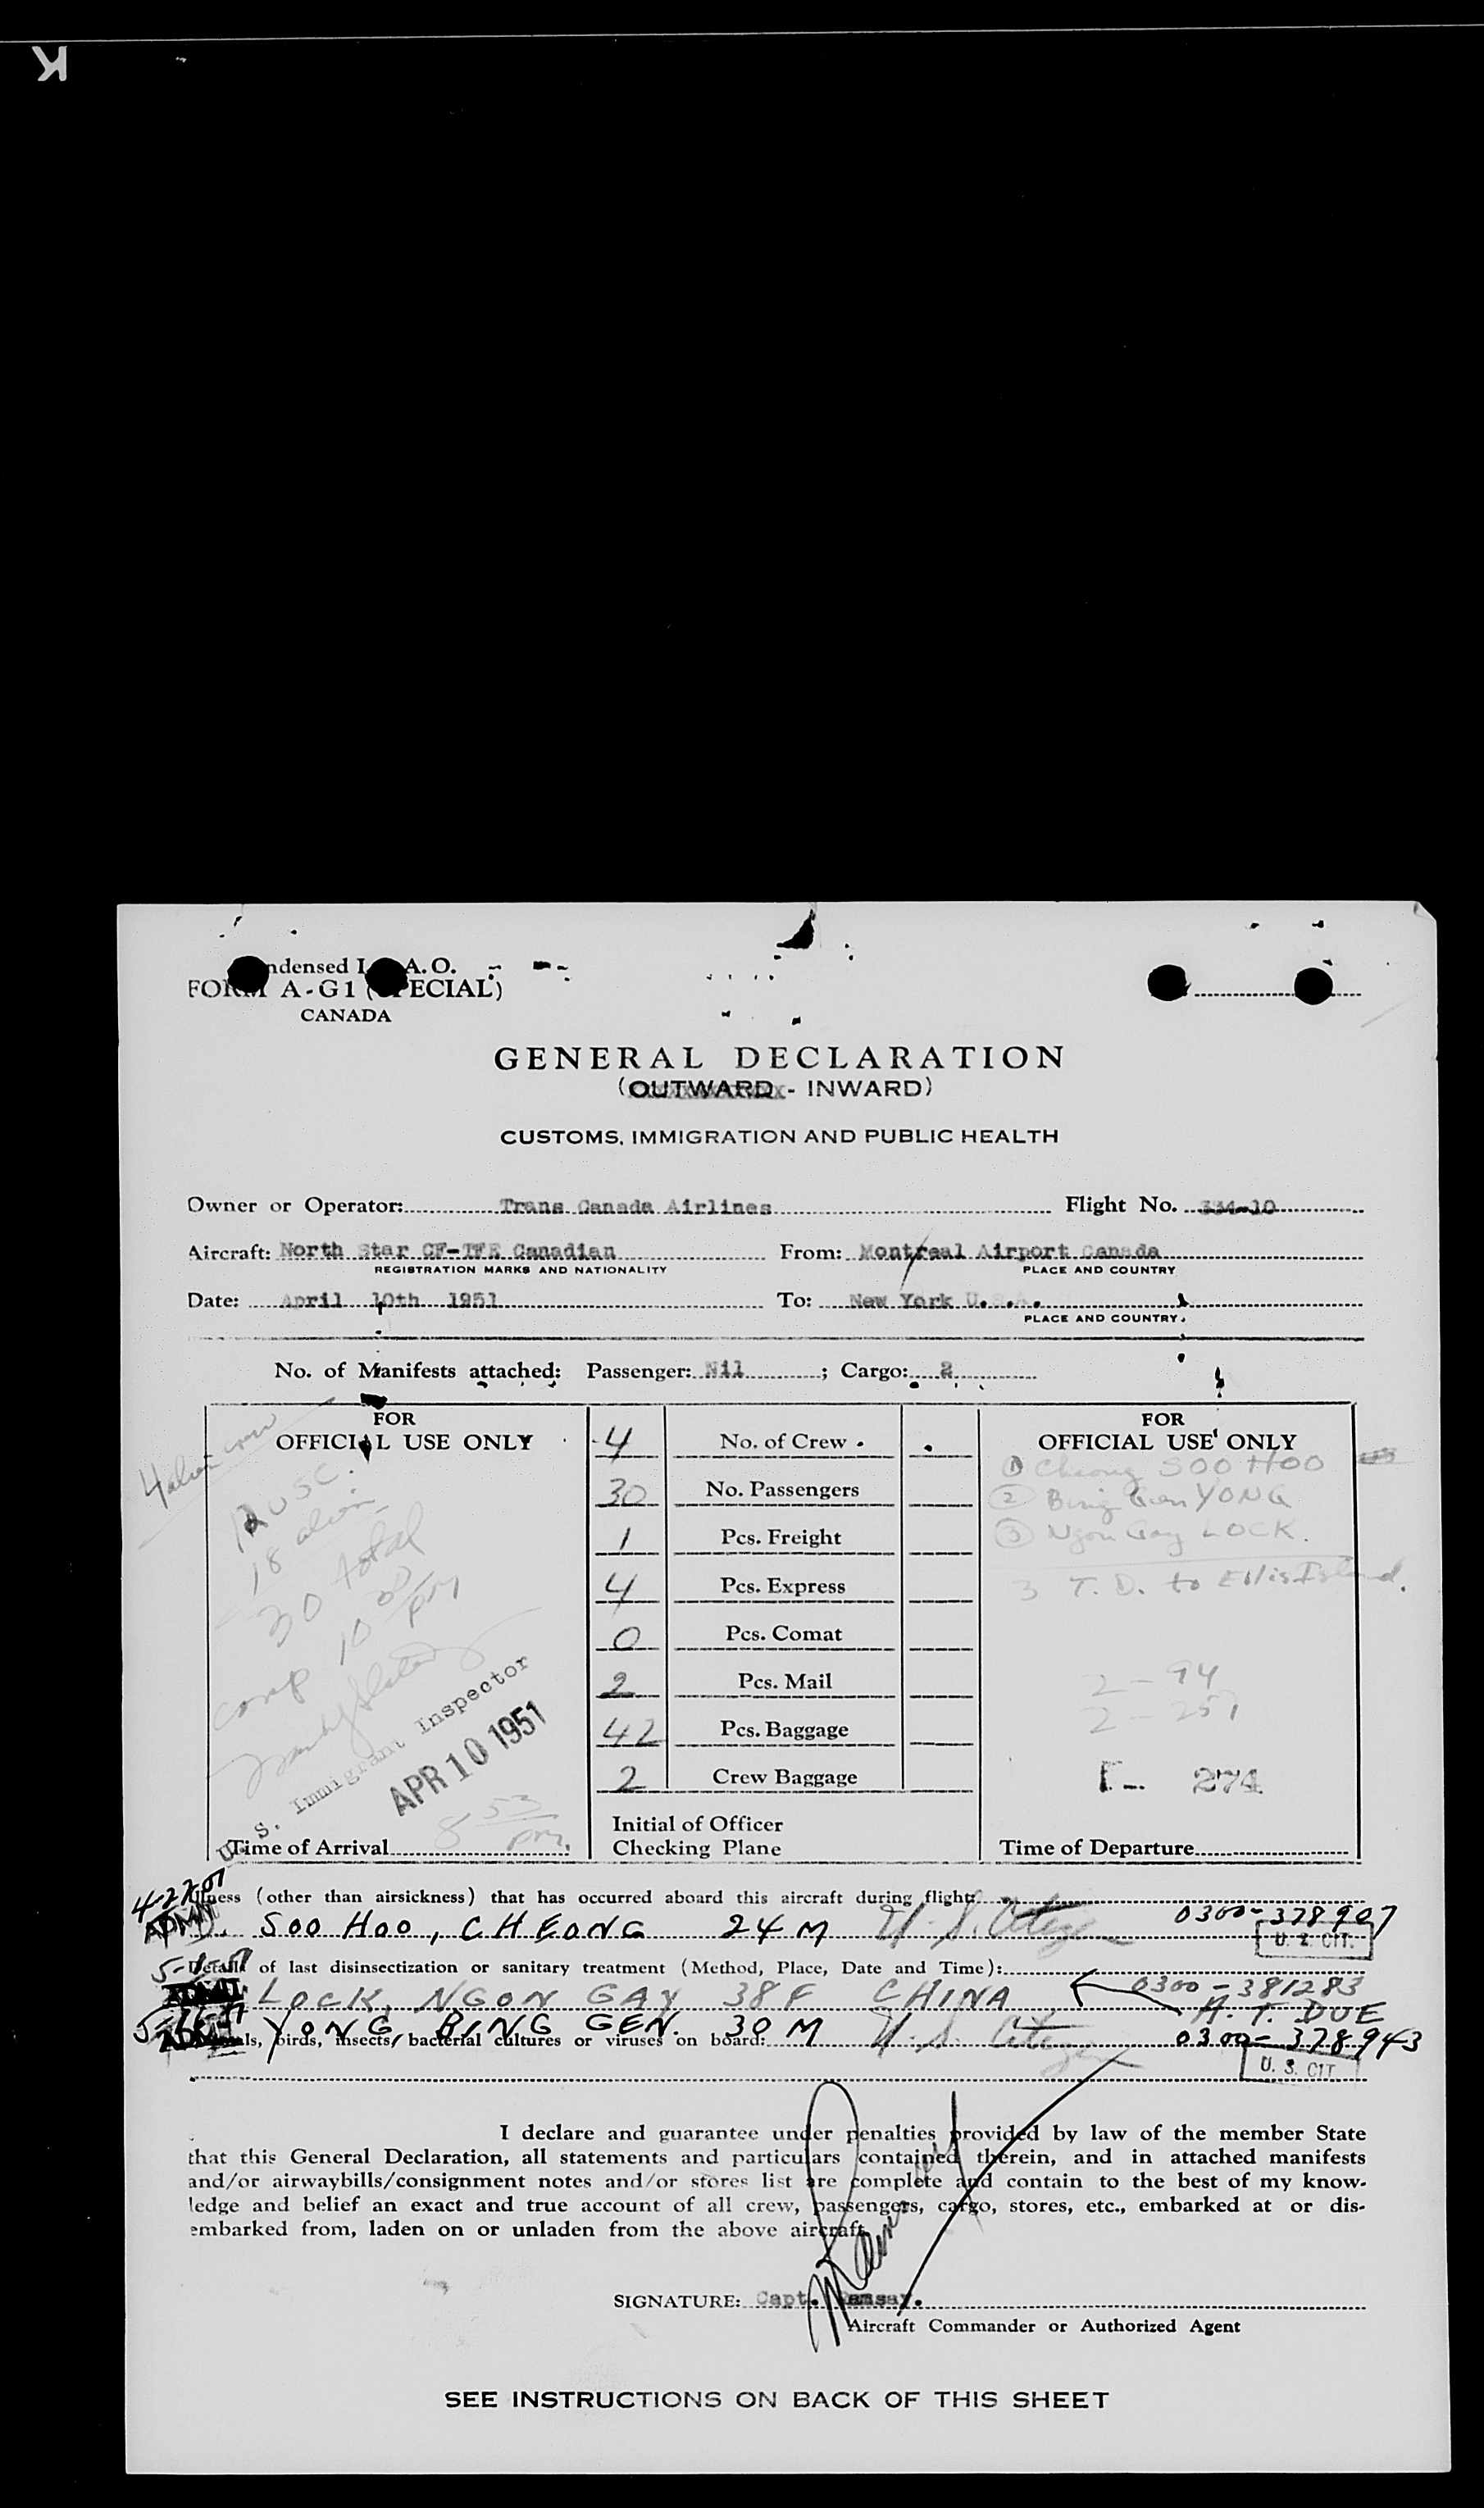 K
Condensed I.C.A.O.
FORM A-G1 (SPECIAL)
CANADA
GENERAL DECLARATION
(OUTWARD - INWARD)
CUSTOMS, IMMIGRATION AND PUBLIC HEALTH
Owner or Operator: Trans Canada Airlines Flight No. 334-10
Aircraft: North Star CF-TFE Canadian From: Montreal Airport Canada
REGISTRATION MARKS AND NATIONALITY PLACE AND COUNTRY
Date: April 10th 1951 To: New York U.S.A.
PLACE AND COUNTRY
No. of Manifests attached: Passenger: Nil ; Cargo: 2
FOR
OFFICIAL USE ONLY
4 alien crew
12 USC.
18 alien
30 total
comp 10 30 pm
U. S. Immigrant Inspector
APR 10 1951
8 53 pm.
Time of Arrival
4 No. of Crew
30 No. Passengers
1 Pcs. Freight
4 Pcs. Express
0 Pcs. Comat
2 Pcs. Mail
42 Pcs. Baggage
2 Crew Baggage
Initial of Officer
Checking Plane
FOR
OFFICIAL USE ONLY
① Cheong SOO HOO
② Bing Gen YONG
③ Ngon Gay LOCK.
3 T. D. to Ellis Island.
2 - 94
2 - 251
I - 274
Time of Departure
Illness (other than airsickness) that has occurred aboard this aircraft during flight:
ADMIT. SOO HOO, CHEONG 24 M U. S. Citizen 0300-378907
U. S. CIT.
Details of last disinsectization or sanitary treatment (Method, Place, Date and Time):
ADMIT. LOCK, NGON GAY 38 F CHINA 0300-381283
H. T. DUE
ADMIT YONG, BING GEN. 30 M U. S. Citizen 0300-378943
Animals, birds, insects, bacterial cultures or viruses on board:
U. S. CIT.
I declare and guarantee under penalties provided by law of the member State
that this General Declaration, all statements and particulars contained therein, and in attached manifests
and/or airwaybills/consignment notes and/or stores list are complete and contain to the best of my know-
ledge and belief an exact and true account of all crew, passengers, cargo, stores, etc., embarked at or dis-
embarked from, laden on or unladen from the above aircraft.
SIGNATURE: Capt. Ramsay.
Aircraft Commander or Authorized Agent
SEE INSTRUCTIONS ON BACK OF THIS SHEET